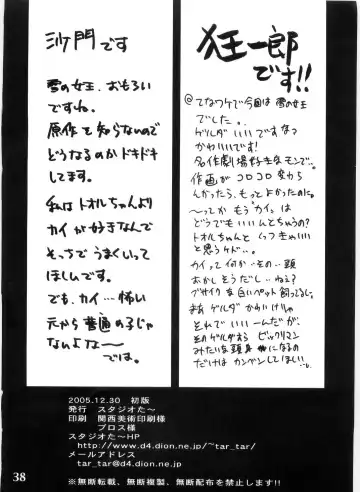 狂一郎
です!!
@てなワケで今回は雪の女王
でした。
ゲルダいいですなっ
かわいいです!
名作劇場好きなモンで…
作画がコロコロ変わら
んかったら、もっとよかったのに。
〜ってか もう「カイ」は
どうでもいいんとちゃうの?
トオルちゃんと くっつきゃいい
と思うケド…。
カイって何か…その…頭
おかしそうだし…ねえ?
ブサイクな白いペット飼ってるし。
まあ ゲルダ かわいけりゃ
それでいいーんだが、
そのゲルダすら ビックリマン
みたいな頭身になるの
だけはカンベンしてほしい…
沙門です
雪の女王、おもろい
ですね。
原作を知らないので
どうなるのかドキドキ
してます。
私はトオルちゃんより
カイが好きなんで
そっちでうまくいって
ほしいです。
でも、カイ…怖い
元から普通の子じゃ
ないよな〜
では。
2005.12.30 初版
発行 スタジオた〜
印刷 関西美術印刷様
プロス様
スタジオた〜HP
http://www.d4.dion.ne.jp/~tar_tar/
メールアドレス
tar_tar@d4.dion.ne.jp
※無断転載、無断複製、無断配布を禁止します!!
38